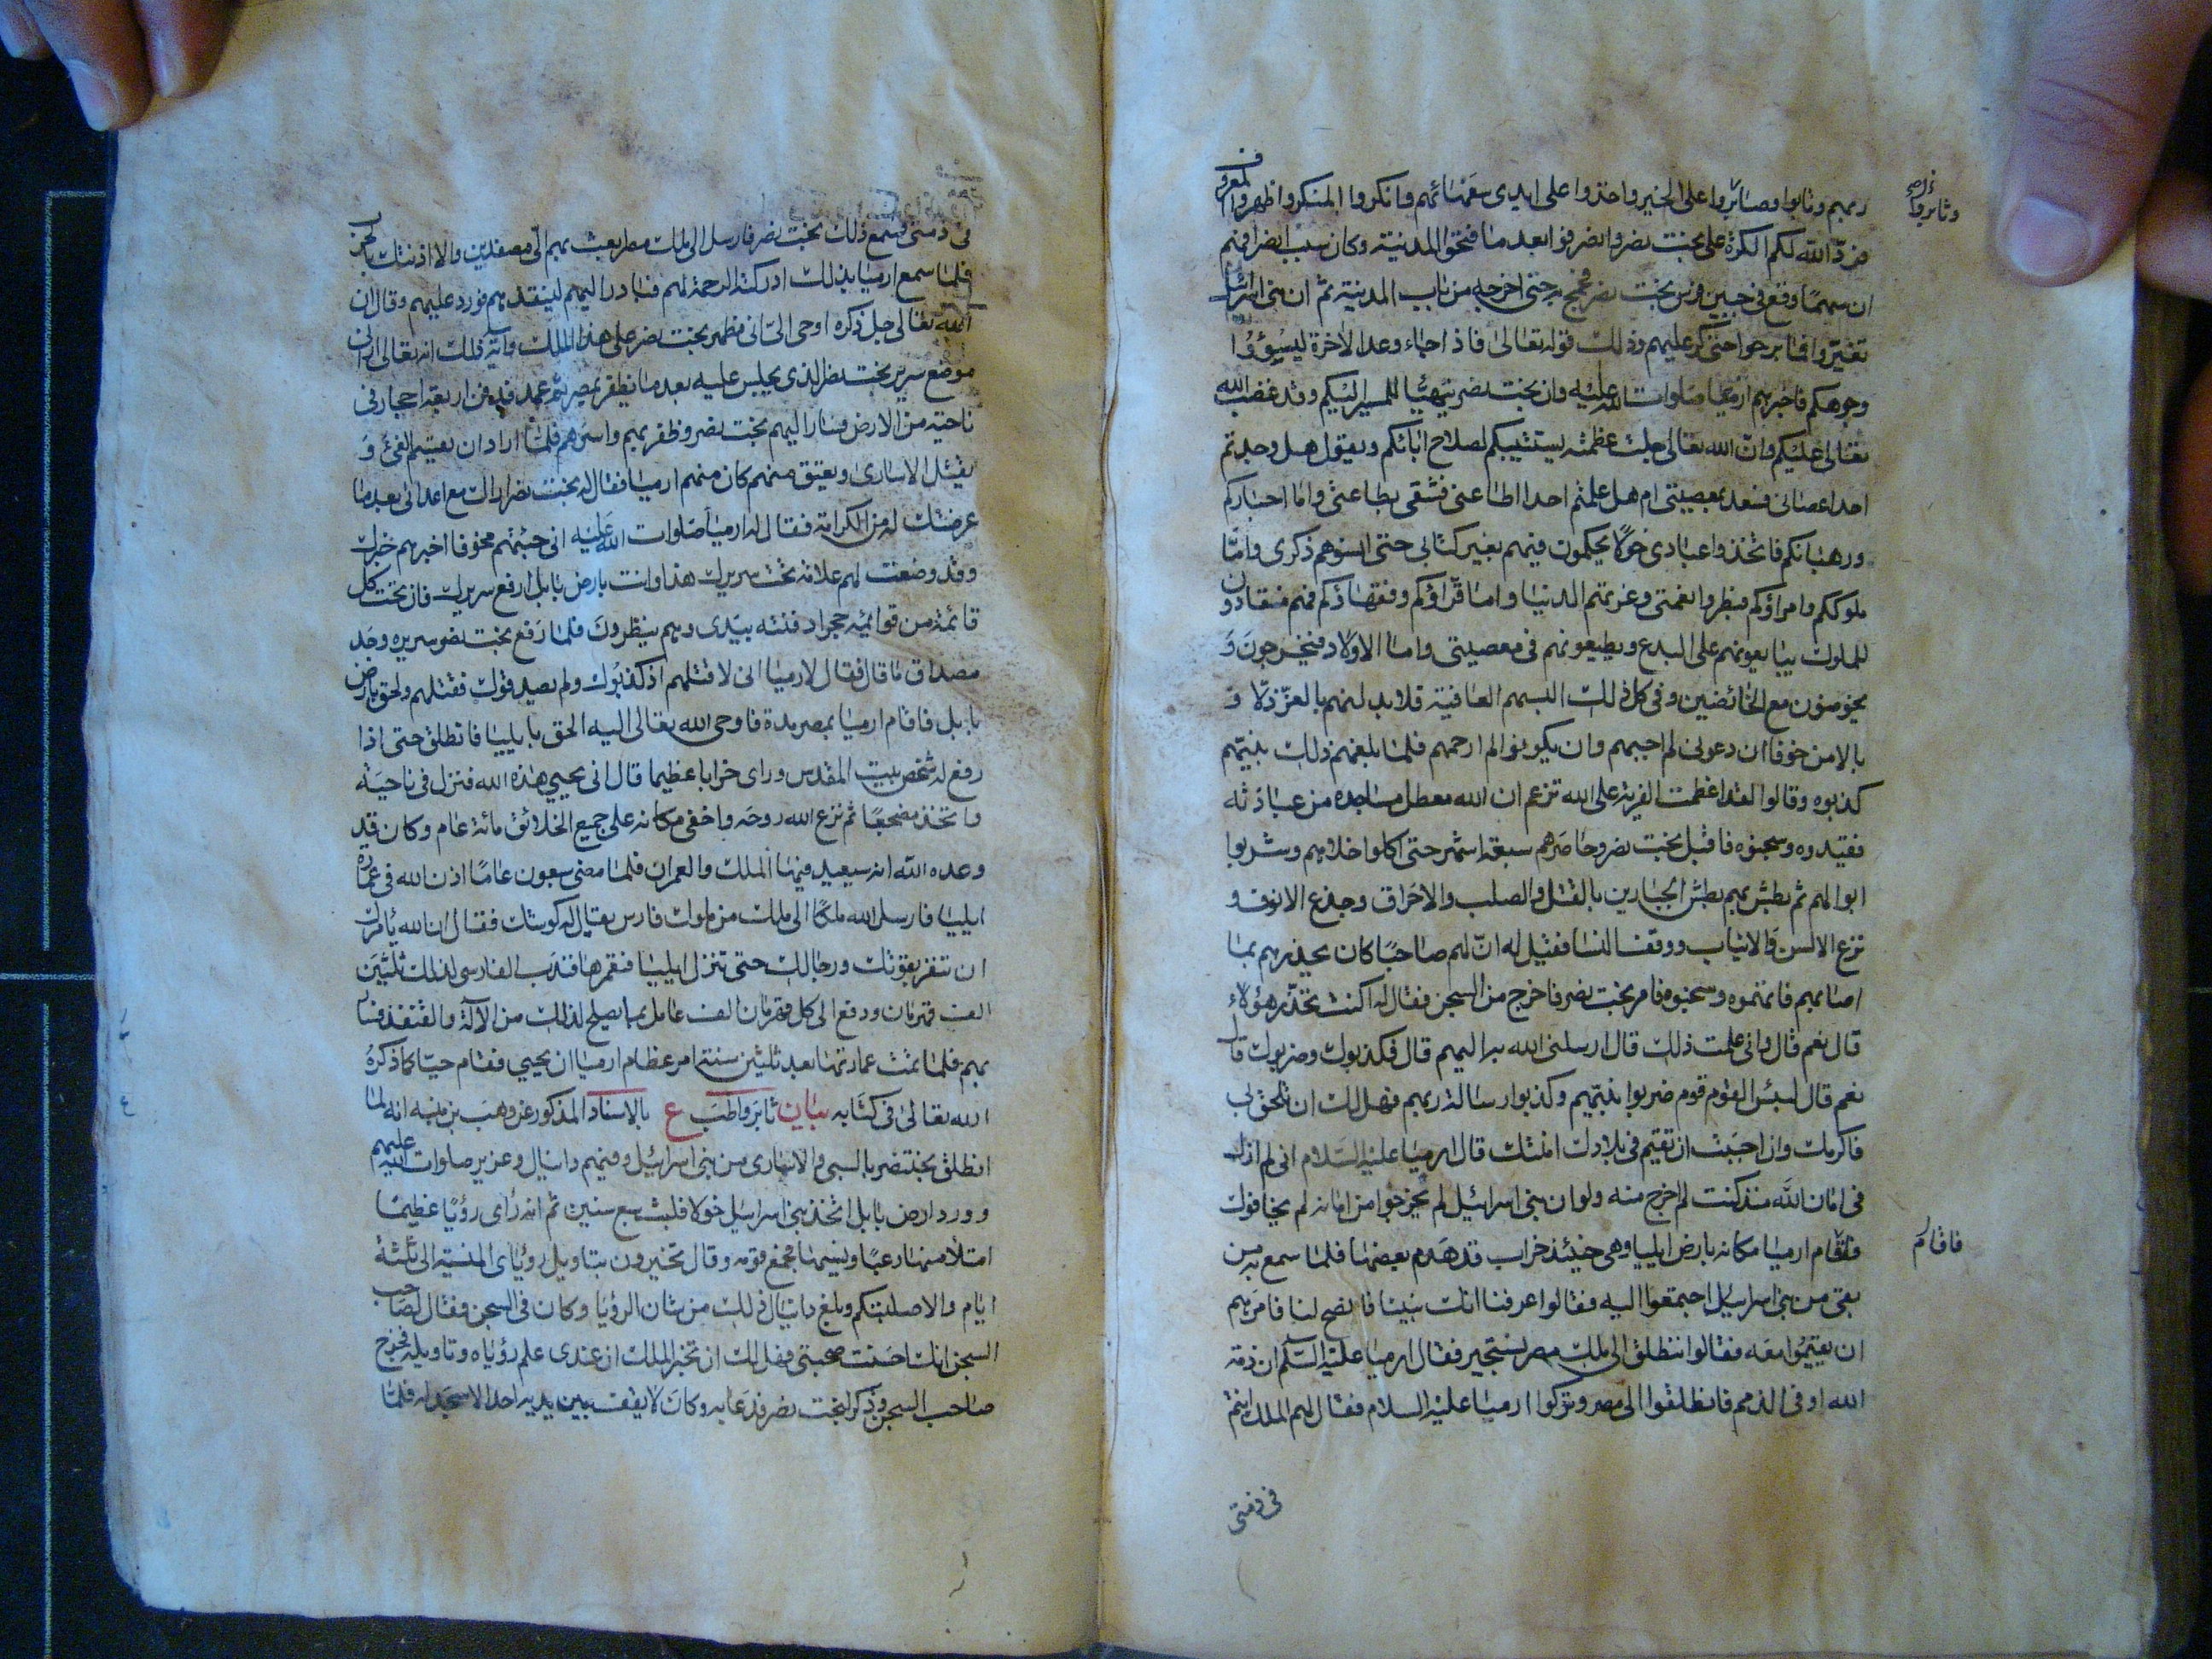 ربهم وتابوا وصابروا على الخير واخذوا على ايدى سفهائهم وانكروا المنكر واظهروا المعروف
وثابروا
فردّ الله لكم الكرة على بخت نصر وانصرفوا بعد ما فتحوا المدينة وكان سبب انصرافهم
ان سهمًا وقع فى جبين فرس بخت نصر فجمح به حتى اخرجه من باب المدينة ثم ان بنى اسرائيل
تغيّروا فما برحوا حتى كرّ عليهم وذلك قوله تعالى فاذا جاء وعد الاخرة ليسؤوا
وجوهكم فاخبرهم ارميا صلوات الله عليه وان بخت نصر يتهيّا للمسير اليكم وقد غضب الله
تعالى عليكم وانّ الله تعالى جلت عظمته يستتيبكم لصلاح ابائكم ويقول هل وجدتم
احدا عصانى فسعد بمعصيتى ام هل علمتم احدا اطاعنى فشقى بطاعتى واما احباركم
ورهبانكم فاتخذوا عبادى خولًا يحكمون فيهم بغير كتابى حتى انسوهم ذكرى وامّا
ملوككم وامراؤكم فبطروا نعمتى وغرتهم الدنيا واما قرّاؤكم وفقهاؤكم فهم منقادون
للملوك يبايعونهم على البدع ويطيعونهم فى معصيتى واما الاولاد فيخرجون وَ
يخوضون مع الخائضين وفى كل ذلك البسهم العافية فلابدلنهم بالعزّ ذلّا و
بالامن خوفا ان دعونى لم اجبهم وان بكوا لم ارحمهم فلما بلغهم ذلك نبيّهم
كذبوه وقالوا لقد اعظمت الفرية على الله تزعم ان الله معطل مساجده من عبادته
فقيدوه وسجنوه فاقبل بخت نصر وحاصرهم سبعة اشهر حتى اكلوا خلاهم وشربوا
ابوالهم ثم بطش بهم بطش الجبارين بالقتل والصلب والاحراق وجذع الانوف و
نزع الالسن والانياب ووقف النسا فقيل له انّ لهم صاحبًا كان يحذرهم بما
اصابهم فاتهموه وسجنوه فامر بخت نصر فاخرج من السجن فقال له اكنت تحذّر هؤلاء
قال نعم قال وانى علمت ذلك قال ارسلنى الله به اليهم قال فكذبوك وضربوك قال
نعم قال لبئس القوم قوم ضربوا نبيّهم وكذبوا رسالة ربهم فهل لك ان تلحق بى
فاكرمك وان احببت ان تقيم فى بلادك امنتك قال ارميا عليه السلام انى لم ازل
فى امان الله منذ كنت لم اخرج منه ولو ان بنى اسرائيل لم يخرجوا من امانه لم يخافوك
فاقام ارميا مكانه بارض ايليا وهى حينئذ خراب قد هدم بعضها فلما سمع به من
فاقام
بقى من بنى اسرائيل اجتمعوا اليه فقالوا عرفنا انك نبينا فانصح لنا فامرهم
ان يقيموا معه فقالوا ننطلق الى ملك مصر نستجير فقال ارميا عليه السّلم ان ذمة
الله اوفى الذمم فانطلقوا الى مصر وتركوا ارميا عليه السلام فقال لهم الملك انتم
فى ذمتى
فى ذمتى فسمع ذلك بخت نصر فارسل الى ملك مصر ابعث بهم الىّ مصفدين والا اذنتك بالحرب
فلما سمع ارميا بذلك ادركته الرحمة لهم فبادر اليهم لينقذهم فورد عليهم وقال ان
الله تعالى جل ذكره اوحى الىّ انى مظهر بخت نصر على هذا الملك واية ذلك انه تعالى ارانى
موضع سرير بخت نصر الذى يجلس عليه بعد ما يظفر بمصر ثم عمد فدفن اربعة احجار فى
ناحية من الارض فسار اليهم بخت نصر وظفر بهم واسرهم فلما اراد ان يقسم الفئ وَ
يقتل الاسارى ويعتق منهم كان منهم ارميا فقال له بخت نصر اراك مع اعدائى بعد ما
عرضتك له من الكرامة فقال له ارميا صلوات الله عليه انى جئتهم مخوفا اخبرهم خبرك
وقد وضعت لهم علامة تحت سريرك هذا وانت بارض بابل ارفع سريرك فان تحت كل
قائمة من قوائمه حجرا دفنته بيدى وهم ينظرون فلما رفع بخت نصر سريره وجد
مصداق ما قال فقال لارميا انى لاقتلهم اذ كذبوك ولم يصدقوك فقتلهم ولحق بارض
بابل فاقام ارميا بمصر مدة فاوحى الله تعالى اليه الحق بايليا فانطلق حتى اذا
رفع له شخص بيت المقدس وراى خرابا عظيما قال انى يحيي هذه الله فنزل فى ناحية
واتخذ مضجعًا ثم نزع الله روحه واخفى مكانه على جميع الخلائق مائة عام وكان قد
وعده الله انه سيعيد فيها الملك والعمران فلما مضى سبعون عامًا اذن الله فى عمارة
ايليا فارسل الله ملكًا الى ملك من ملوك فارس يقال له كوشك فقال ان الله يأمرك
ان تنفر بقوتك ورجالك حتى تنزل ايليا فتعمرها فندب الفارسى لذلك ثلثين
الف قهرمان ودفع الى كل قهرمان الف عامل بما يصلح لذلك من الآلة والنفقة فسار
بهم فلما تمت عمارتها بعد ثلثين سنة امر عظام ارميا ان يحيى فقام حيّا كما ذكره
الله تعالى فى كتابه بيان ثابر واظب ع بالاسناد المذكور عن وهب بن منبه انه لما
انطلق بختنصر بالسبى والاسارى من بنى اسرائيل وفيهم دانيال وعزير صلوات الله عليهم
وورد ارض بابل اتخذ بنى اسرائيل خولا فلبث سبع سنين ثم انه رأى رؤيًا عظيمًا
امتلأ منها رعبًا ونسيها فجمع قومه وقال تخبرون بتاويل رؤياى المنسية الى ثلثة
ايام والا صلبتكم وبلغ دانيال ذلك من شان الرؤيا وكان فى السجن فقال لصاحب
السجن انك احسنت صحبتى فهل لك ان تخبر الملك ان عندى علم رؤياه وتاويله فخرج
صاحب السجن وذكر لبخت نصر فدعا به وكان لا يقف بين يديه احد الا سجد له فلما